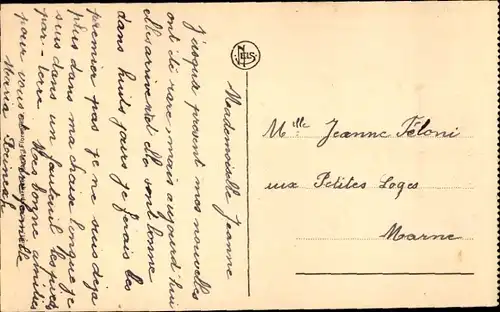 Mademoiselle Jeanne
J'usqua present mes nouvelles
ont été rare mais aujourd'hui
elle arrive et elle sont bonne
dans huits jours je ferais les
premier pas je ne suis déja
plus dans ma chaise longue je
suis dans un fauteuil les pieds
par-terre. Mes bonne amitiés
pour vous et votre famille
Maria
NELS
Mlle Jeanne Féloni
aux Petites Loges
Marne